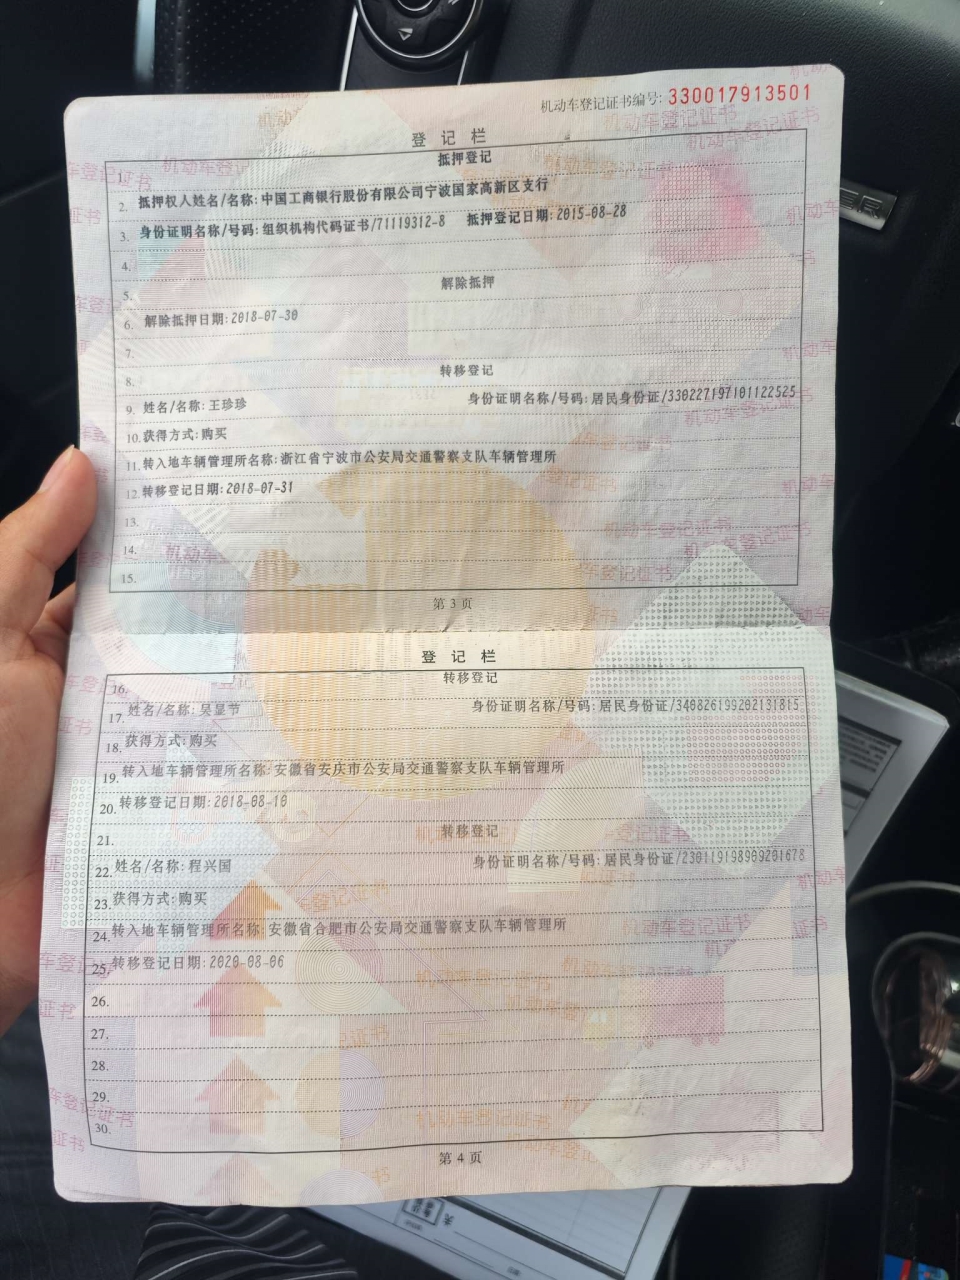 机动车登记证书编号: 330017913501
登 记 栏
1. 抵押登记
2. 抵押权人姓名/名称: 中国工商银行股份有限公司宁波国家高新区支行
3. 身份证明名称/号码: 组织机构代码证书/71119312-8 抵押登记日期: 2015-08-28
4.
5. 解除抵押
6. 解除抵押日期: 2018-07-30
7.
8. 转移登记
9. 姓名/名称: 王珍珍 身份证明名称/号码: 居民身份证/330227197101122525
10. 获得方式: 购买
11. 转入地车辆管理所名称: 浙江省宁波市公安局交通警察支队车辆管理所
12. 转移登记日期: 2018-07-31
13.
14.
15.
第 3 页
登 记 栏
16. 转移登记
17. 姓名/名称: 吴显节 身份证明名称/号码: 居民身份证/340826199202131815
18. 获得方式: 购买
19. 转入地车辆管理所名称: 安徽省安庆市公安局交通警察支队车辆管理所
20. 转移登记日期: 2018-08-10
21. 转移登记
22. 姓名/名称: 程兴国 身份证明名称/号码: 居民身份证/230119198909201678
23. 获得方式: 购买
24. 转入地车辆管理所名称: 安徽省合肥市公安局交通警察支队车辆管理所
25. 转移登记日期: 2020-08-06
26.
27.
28.
29.
30.
第 4 页